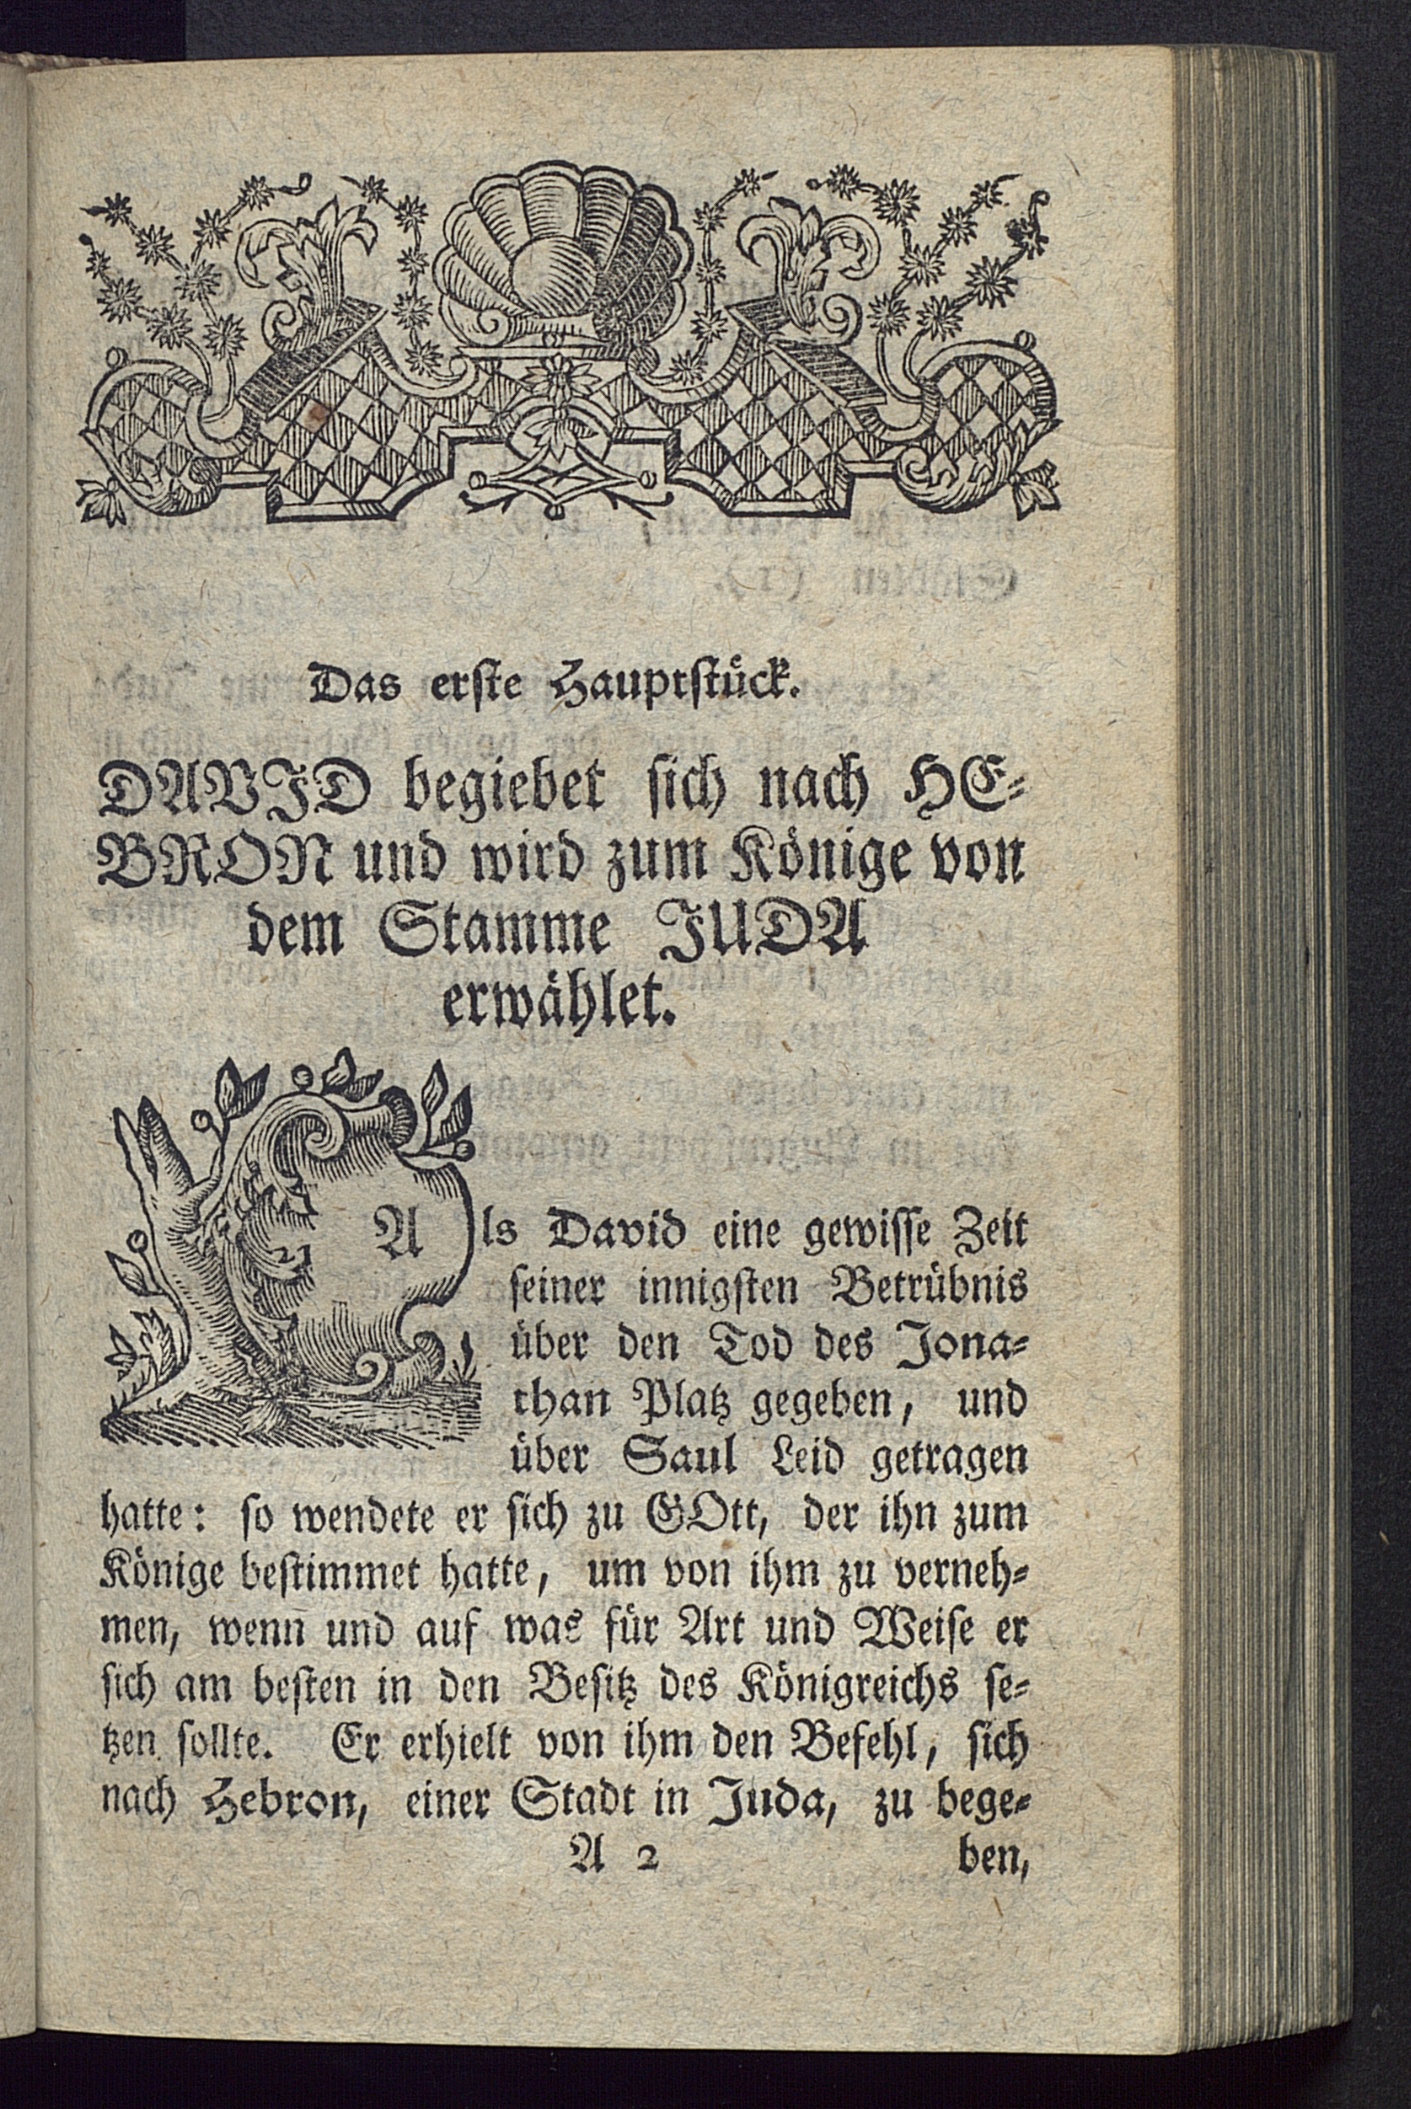 Das erste Hauptstück.
DAVID begiebet sich nach HE-
BRON und wird zum Könige von
dem Stamme JUDA
erwählet.
Als David eine gewisse Zeit
seiner innigsten Betrübnis
über den Tod des Jona-
than Platz gegeben, und
über Saul Leid getragen
hatte: so wendete er sich zu GOtt, der ihn zum
Könige bestimmet hatte, um von ihm zu verneh-
men, wenn und auf was für Art und Weise er
sich am besten in den Besitz des Königreichs se-
tzen sollte. Er erhielt von ihm den Befehl, sich
nach Hebron, einer Stadt in Juda, zu bege-
A 2 ben,